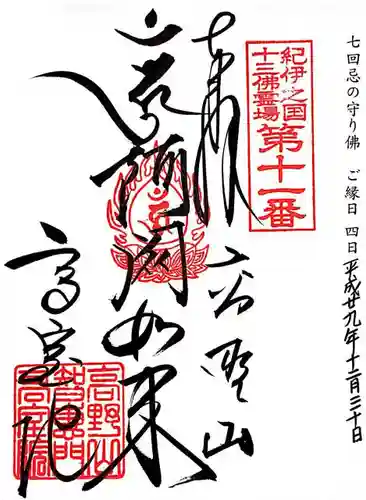 七回忌の守り佛 ご縁日 四日
平成廿九年十二月三十日
紀伊之国
十三佛霊場
第十一番
奉拝
高野山
阿閦如来
高室院